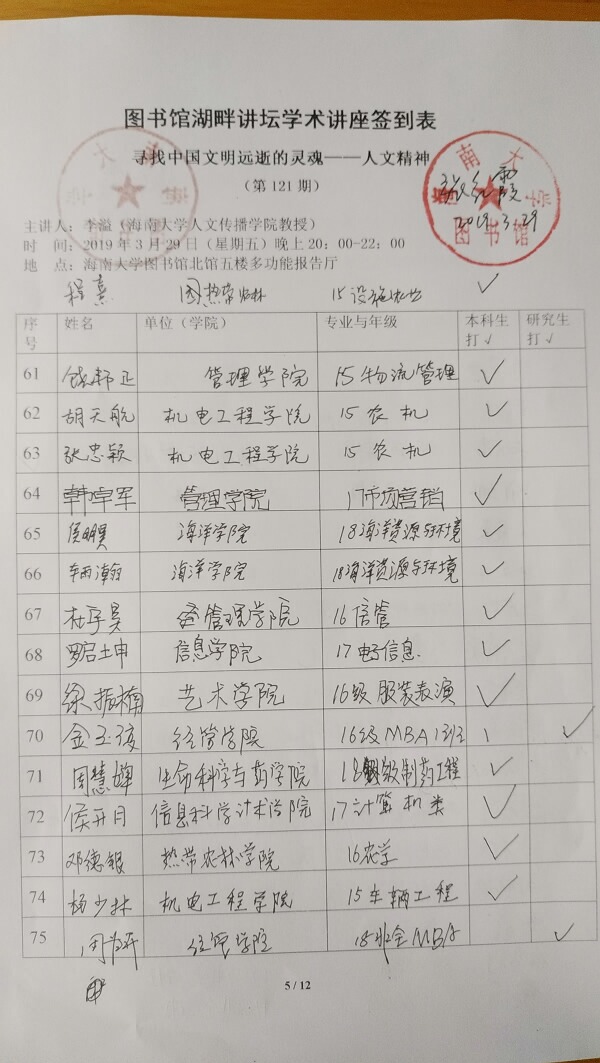 图书馆湖畔讲坛学术讲座签到表
寻找中国文明远逝的灵魂——人文精神
（第 121 期）
海南大学
图书馆
2019.3.29
主讲人：李溢（海南大学人文传播学院教授）
时　间：2019 年 3 月 29 日（星期五）晚上 20：00-22；00
地　点：海南大学图书馆北馆五楼多功能报告厅
程熹 热带农林 15设施农业 ✓
序号 姓名 单位（学院） 专业与年级 本科生打√ 研究生打√
61 管理学院 15物流管理 ✓
62 胡天航 机电工程学院 15农机 ✓
63 张忠颖 机电工程学院 15农机 ✓
64 韩卓军 管理学院 17市场营销 ✓
65 海洋学院 18海洋资源与环境 ✓
66 海洋学院 18海洋资源与环境 ✓
67 杜宇昊 管理学院 16信管 ✓
68 信息学院 17电子信息 ✓
69 徐振楠 艺术学院 16级服装表演 ✓
70 金玉 经管学院 16级MBA1班 ✓
71 周慧婵 生命科学与药学院 18级制药工程 ✓
72 侯开月 信息科学技术学院 17计算机类 ✓
73 邓德银 热带农林学院 16农学 ✓
74 杨少林 机电工程学院 15车辆工程 ✓
75 经管学院 18非全MBA ✓
5 / 12